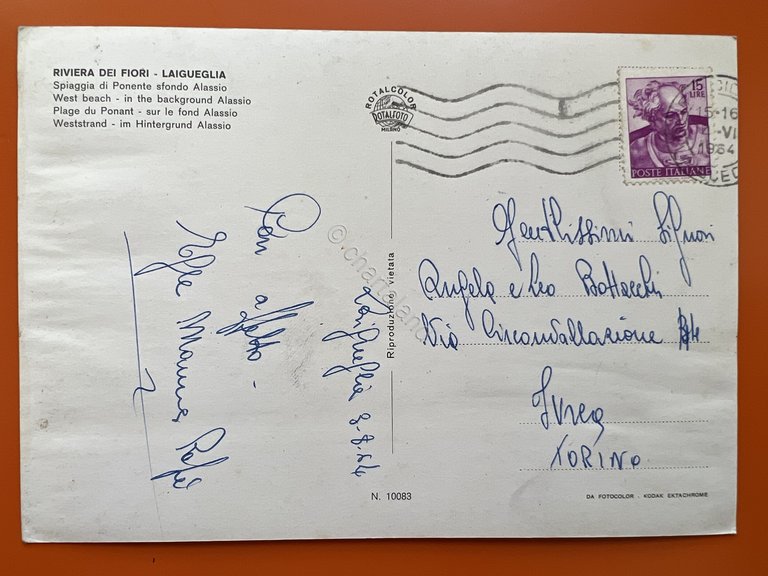 RIVIERA DEI FIORI - LAIGUEGLIA
Spiaggia di Ponente sfondo Alassio
West beach - in the background Alassio
Plage du Ponant - sur le fond Alassio
Weststrand - im Hintergrund Alassio
ROTALCOLOR
ROTALFOTO
MILANO
15 LIRE
POSTE ITALIANE
15-16
VI
1964
Laigueglia 3-8-64
Con affetto -
Gentilissimi Signori
Angela e Leo Bottacchi
Via Circondallazione
Ivrea
TORINO
Riproduzione vietata
N. 10083
DA FOTOCOLOR - KODAK EKTACHROME